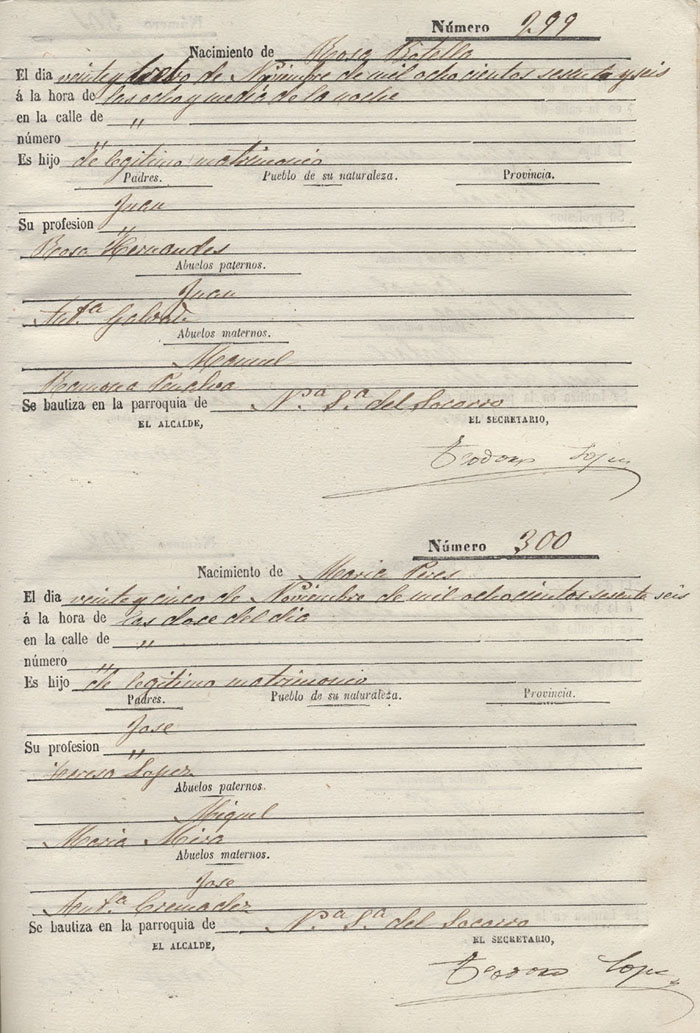 Número 299
Nacimiento de Rosa Botella
El dia veinte y de Noviembre de mil ochocientos sesenta y seis
á la hora de las ocho y media de la noche
en la calle de "
número "
Es hijo de legitimo matrimonio
Padres. Pueblo de su naturaleza. Provincia.
Juan
Su profesion "
Rosa Hernandes
Abuelos paternos.
Juan
Ant.ª
Abuelos maternos.
Manuel
Ramona Penalva
Se bautiza en la parroquia de N.ª S.ª del Socorro
EL ALCALDE, EL SECRETARIO,
Teodoro Lopez
Número 300
Nacimiento de Maria Peres
El dia veinte y cinco de Noviembre de mil ochocientos sesenta seis
á la hora de las dose del dia
en la calle de "
número "
Es hijo de legitimo matrimonio
Padres. Pueblo de su naturaleza. Provincia.
Jose
Su profesion "
Teresa Lopez
Abuelos paternos.
Miguel
Maria Mira
Abuelos maternos.
Jose
Ant.ª Cremadez
Se bautiza en la parroquia de N.ª S.ª del Socorro
EL ALCALDE, EL SECRETARIO,
Teodoro Lopez